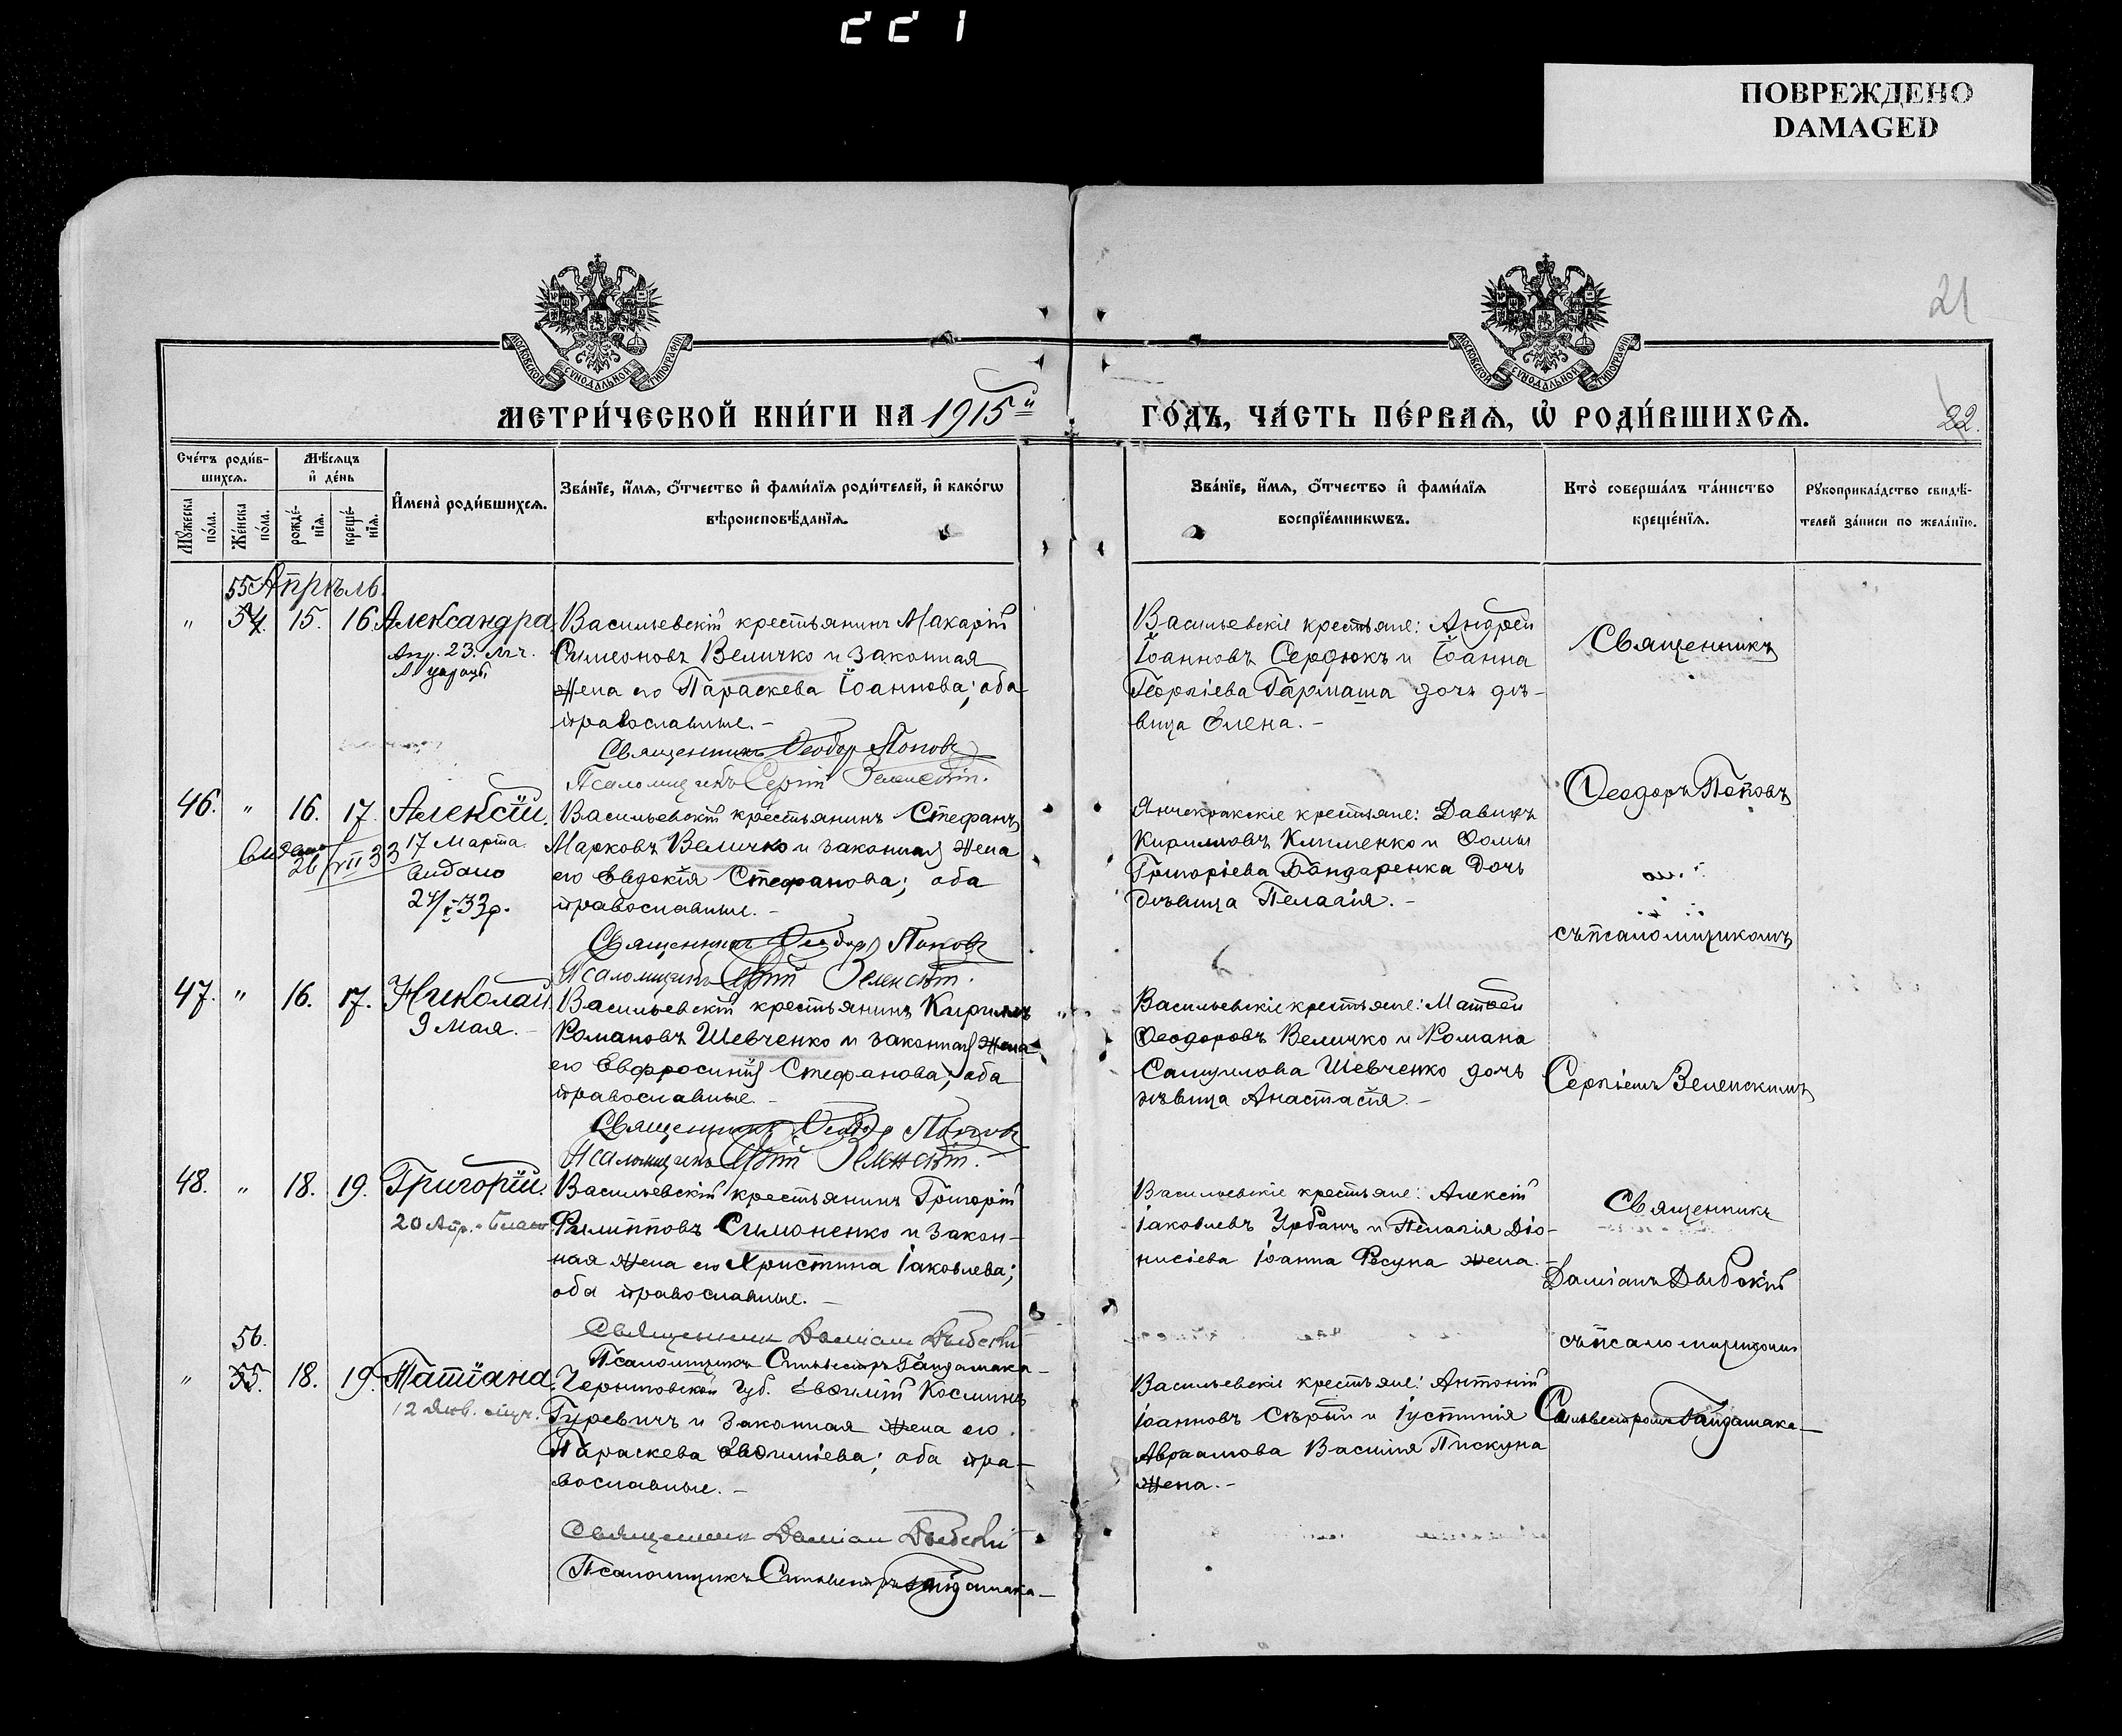 ПОВРЕЖДЕНО
DAMAGED
21
МОСКОВСКОЙ СѴНОДАЛЬНОЙ ТИПОГРАФІИ
МОСКОВСКОЙ СѴНОДАЛЬНОЙ ТИПОГРАФІИ
МЕТРИ́ЧЕСКОЙ КНИ́ГИ НА 1915й
ГО́ДЪ, ЧА́СТЬ ПЕ́РВАѦ, Ѡ҆ РОДИ́ВШИХСѦ.
22.
Сче́тъ роди́в-
шихсѧ.
Мѣ́сѧцъ
и҆ де́нь
Мꙋ́жеска
по́ла.
Же́нска
по́ла.
рожде́-
нїѧ.
креще́-
нїѧ.
И҆мена̀ роди́вшихсѧ.
Зва́нїе, и҆́мѧ, ѻ҆́тчество и҆ фами́лїѧ роди́телей, и҆ како́гѡ
вѣроисповѣ́данїѧ.
Зва́нїе, и҆́мѧ, ѻ҆́тчество и҆ фами́лїѧ
воспрїе́мникѡвъ.
Кто̀ соверша́лъ та́инство
креще́нїѧ.
Рꙋкоприкла́дство свидѣ́-
телей за́писи по жела́нїю.
55 Апрѣль.
" 54. 15. 16. Александра.
Апр. 23. мч.
Васильевскій крестьянинъ Макарій
Симеоновъ Величко и законная
жена его Параскева Іоаннова; оба
православные. -
Священникъ Ѳеодоръ Поповъ
Псаломщикъ Сергій Зеленскій.
Васильевскіе крестьяне: Андрей
Іоанновъ Сердюкъ и Іоанна
Георгіева Гармаша дочь дѣ-
вица Елена. -
Священникъ
Ѳеодоръ Поповъ
46. " 16. 17. Алексій.
17 Марта.
видано
26/VII 33
видано
Васильевскій крестьянинъ Стефанъ
Марковъ Величко и законная жена
его Евдокія Стефанова; оба
православные. -
Священникъ Ѳеодоръ Поповъ
Псаломщикъ Сергій Зеленскій.
Янчекракскіе крестьяне: Давидъ
Кирилловъ Клименко и Ѳомы
Григоріева Бондаренка дочь
дѣвица Пелагія. -
съ псаломщикомъ
47. " 16. 17. Николай
9 Мая. -
Васильевскій крестьянинъ Кириллъ
Романовъ Шевченко и законная жена
его Евфросинія Стефанова; оба
православные. -
Священникъ Ѳеодоръ Поповъ
Псаломщикъ Сергій Зеленскій.
Васильевскіе крестьяне: Матѳей
Ѳеодоровъ Величко и Романа
Самуилова Шевченко дочь
дѣвица Анастасія. -
Сергіемъ Зеленскимъ
48. " 18. 19. Григорій.
20 Апр.
Васильевскій крестьянинъ Григорій
Филипповъ Симоненко и закон-
ная жена его Христина Іаковлева;
оба православные. -
Священникъ Даміанъ Дыбскій
Псаломщикъ Сильвестръ Гайдамака
Васильевскіе крестьяне: Алексій
Іаковлевъ Урбанъ и Пелагія Діо-
нисіева Іоанна Ресуна жена. -
Священникъ
Даміанъ Дыбскій
съ псаломщикомъ
56.
" 55. 18. 19. Татіана.
12 Янв. муч.
Черниговской губ. Евѳимій Косминъ
Гуревичъ и законная жена его
Параскева Евѳиміева; оба пра-
вославные. -
Священникъ Даміанъ Дыбскій
Псаломщикъ Сильвестръ Гайдамака
Васильевскіе крестьяне: Антоній
Іоанновъ Сѣрый и Іустинія
Авраамова Василія Пискуна
жена. -
Сильвестромъ Гайдамака